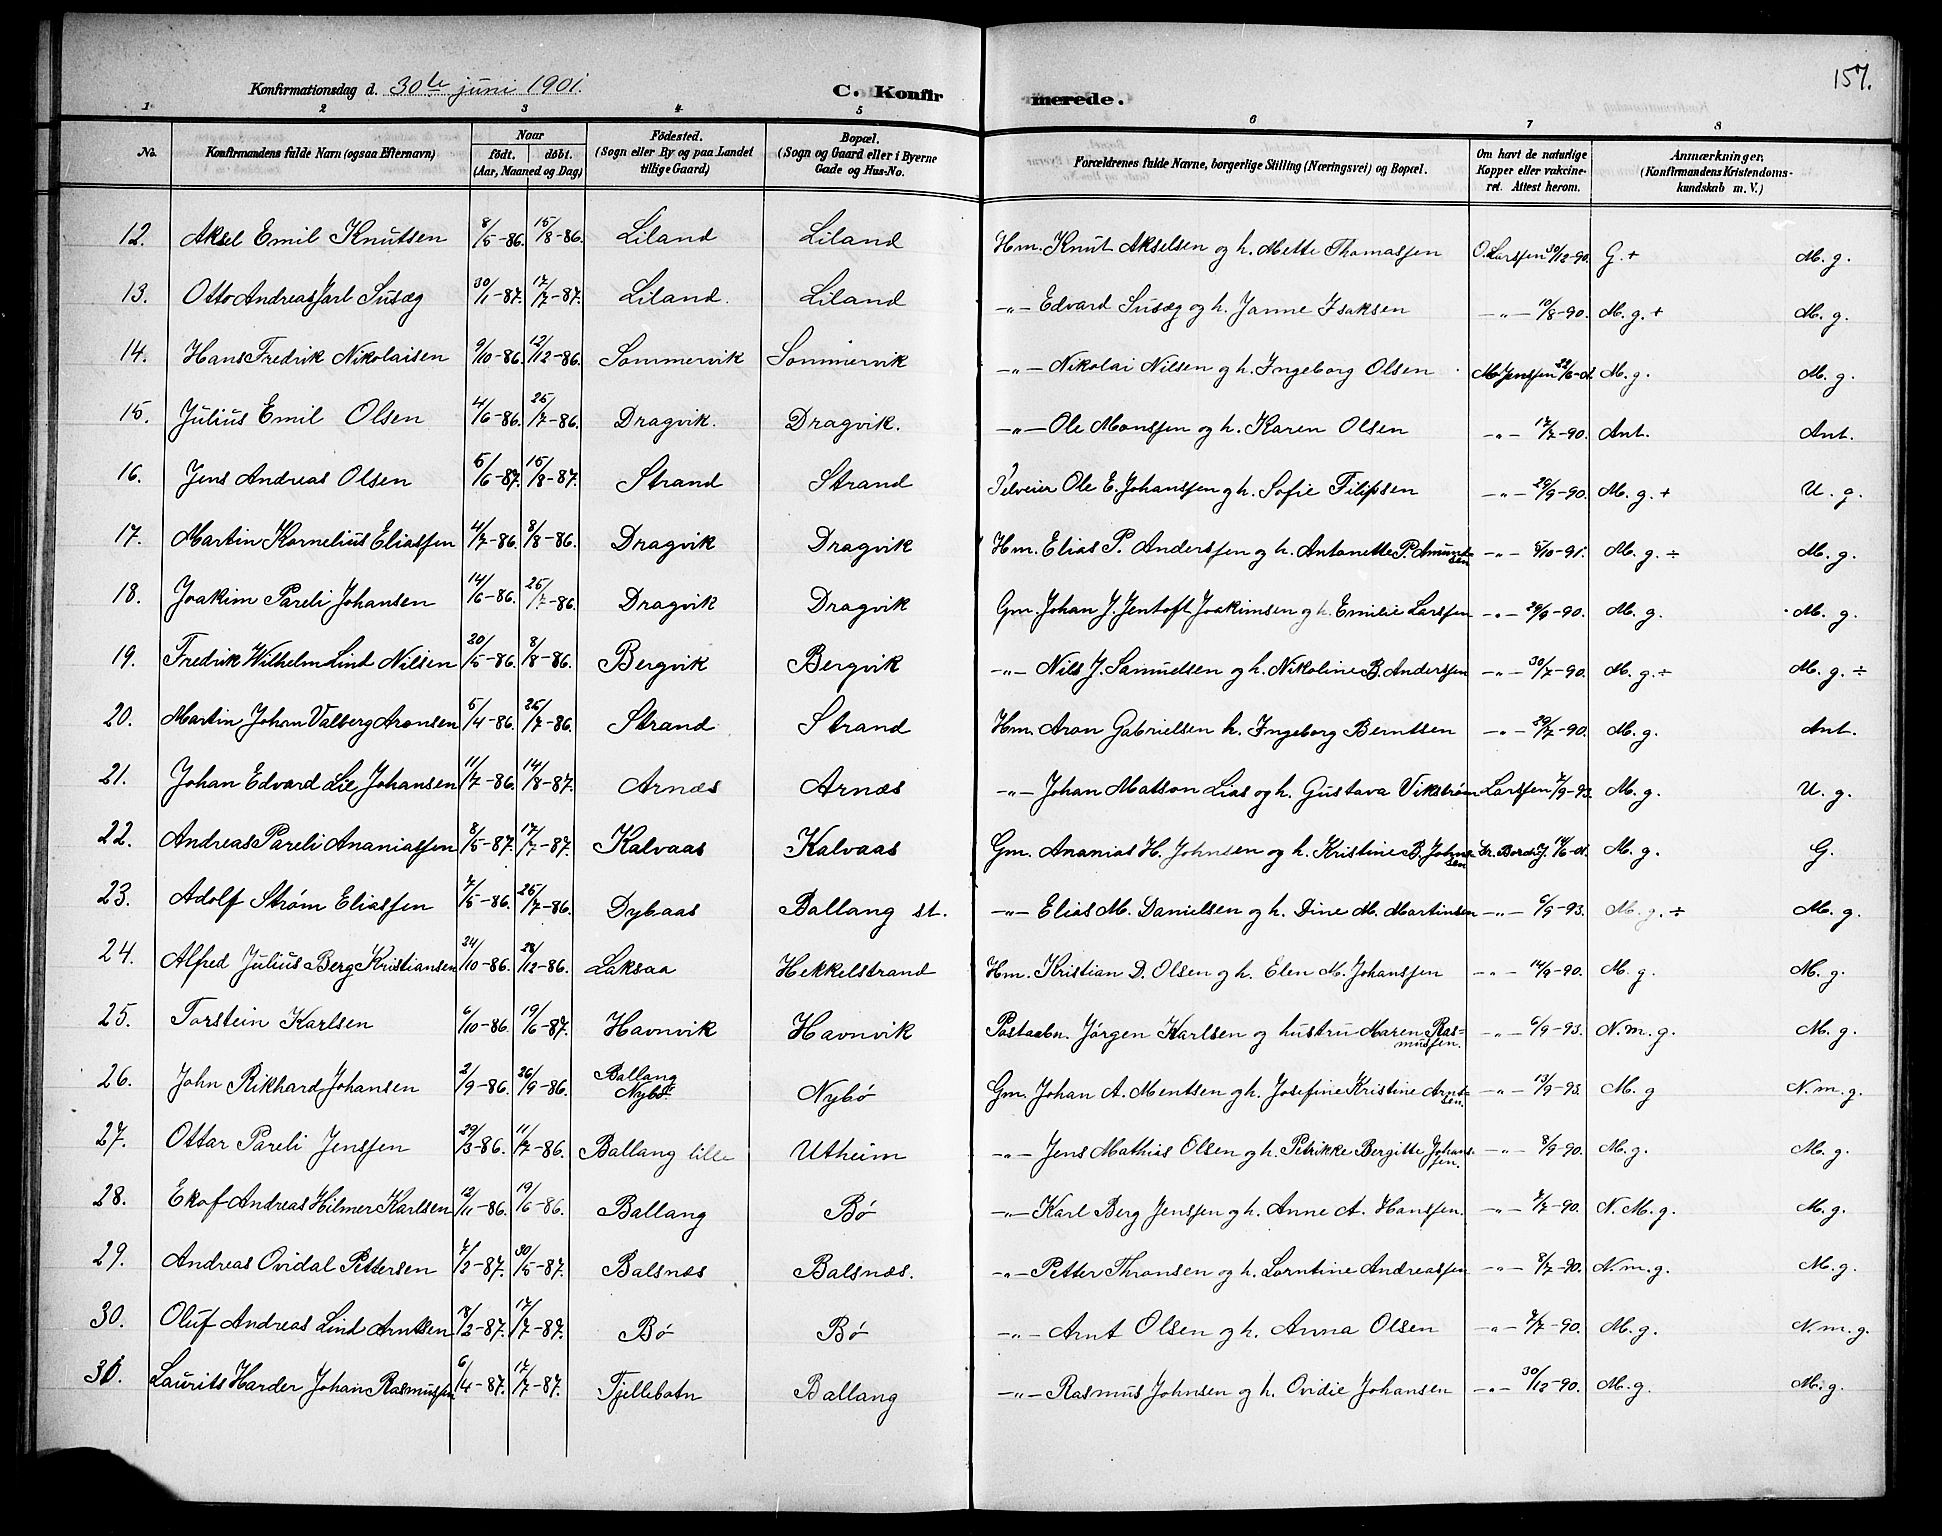 157.
Konfirmationsdag d. 30te juni 1901.
C. Konfirmerede.
1 2 3 4 5 6 7 8
No. Konfirmandens fulde Navn (ogsaa Efternavn) Naar født. døbt. (Aar, Maaned og Dag) Fødested. (Sogn eller By og paa Landet tillige Gaard) Bopæl. (Sogn og Gaard eller i Byerne Gade og Hus-No. Forældrenes fulde Navne, borgerlige Stilling (Næringsvei) og Bopæl. Om havt de naturlige Kopper eller vakcineret. Attest herom. Anmærkninger. (Konfirmandens Kristendomskundskab m. V.)
12. Aksel Emil Knutsen 8/5-86. 15/8-86. Liland Liland Hm. Knut Akselsen og h. Mette Thomassen O. Larssen 30/12-90. G. + M. g.
13. Otto Andreas Jarl Susæg 30/1-87. 17/7-87. Liland. Liland -"- Edvard Susæg og h. Janne Isaksen -"- 10/8-90. M. g. + M. g.
14. Hans Fredrik Nikolaisen 9/10-86. 12/12-86. Sommervik Sommervik -"- Nikolai Nilsen og h. Ingeborg Olsen M. Jenssen 22/6-01. M. g. M. g.
15. Julius Emil Olsen 4/6-86. 25/7-86. Dragvik. Dragvik. -"- Ole Monssen og h. Karen Olsen -"- 17/7-90. Ant. Ant.
16. Jens Andreas Olsen 5/6-87. 15/8-87. Strand Strand Ole E. Johanssen og h. Sofie Filipsen -"- 29/9-90. M. g. + U. g.
17. Martin Kornelius Eliassen 4/7-86. 8/8-86. Dragvik Dragvik Hm. Elias P. Anderssen og h. Antonette P. Amundsen -"- 5/10-91. M. g. ÷ M. g.
18. Joakim Pareli Johansen 14/6-86. 25/7-86. Dragvik Dragvik Gm. Johan J. Jentoft Joakimsen og h. Emilie Larssen -"- 29/9-90. M. g. M. g.
19. Fredrik Wilhelm Lind Nilsen 20/5-86. 8/8-86. Bergvik Bergvik -"- Nils J. Samuelsen og h. Nikoline B. Anderssen -"- 30/7-90. M. g. ÷ M. g. ÷
20. Martin Johan Valberg Aronsen 5/4-86. 26/7-86. Strand Strand Hm. Aron Gabrielsen h. Ingeborg Berntsen -"- 29/7-90. M. g. Ant.
21. Johan Edvard Lie Johansen 11/7-86. 14/8-87. Arnæs Arnæs -"- Johan Matson Lias og h. Gustava Vikstrøm Larssen 7/9-93. M. g. U. g.
22. Andreas Pareli Ananiassen 8/5-87. 17/7-87. Kalvaas Kalvaas Gm. Ananias H. Johnsen og h. Kristine B. Johnsen 14/6-01. M. g. G.
23. Adolf Strøm Eliassen 7/5-86. 25/7-86. Dybaas Ballang st. -"- Elias M. Danielsen og h. Dine M. Martinsen -"- 6/9-93. M. g. ÷ M. g.
24. Alfred Julius Berg Kristiansen 24/10-86. 28/12-86. Laksaa Hekkelstrand Hm. Kristian D. Olsen og h. Elen M. Johanssen -"- 14/9-90. M. g. M. g.
25. Torstein Karlsen 6/10-86. 19/6-87. Havnvik Havnvik Postaabn. Jørgen Karlsen og hustru Maren Rasmussen. -"- 6/9-93. N. m. g. M. g.
26. John Rikhard Johansen 2/9-86. 26/9-86. Ballang Nybø Nybø Gm. Johan A. Mentsen og h. Josefine Kristine Arntsen. -"- 13/9-93. M. g N. m. g.
27. Ottar Pareli Jenssen 29/3-86. 11/7-86. Ballang lille Utheim -"- Jens Mathias Olsen og h. Petrikke Bergitte Johanssen. -"- 8/9-90. M. g. M. g.
28. Ekof Andreas Hilmer Karlsen 12/11-86. 19/6-86. Ballang Bø -"- Karl Berg Jenssen og h. Anne A. Hanssen. -"- 7/7-90. N. M. g. M. g.
29. Andreas Ovidal Pettersen 7/2-87. 30/5-87. Balsnæs Balsnæs. -"- Petter Thronsen og h. Lorntine Andreassen -"- 8/7-90. N. m. g. M. g.
30. Oluf Andreas Lind Arntsen 18/2-87. 17/7-87. Bø Bø -"- Arnt Olsen og h. Anna Olsen -"- 7/7-90. M. g. N. m. g.
31. Laurits Harder Johan Rasmussen 6/4-87. 17/7-87. Fjellbotn Ballang -"- Rasmus Johnsen og h. Ovidie Johansen -"- 30/12-90. M. g. M. g.